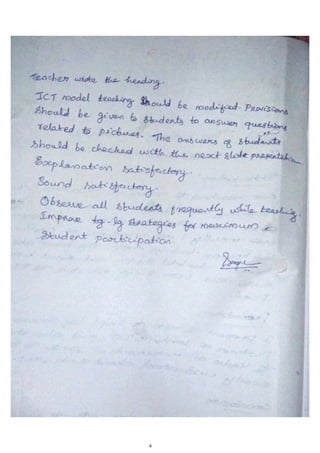 Teacher wrote the heading.
ICT model teaching should be modified. Provisions
should be given to students to answer questions
related to pictures. The answers of students
should be checked with the next slide presentation
Explanation satisfactory.
Sound satisfactory.
Observe all students frequently while teaching.
Improve tg-lg strategies for maximum
student participation
4